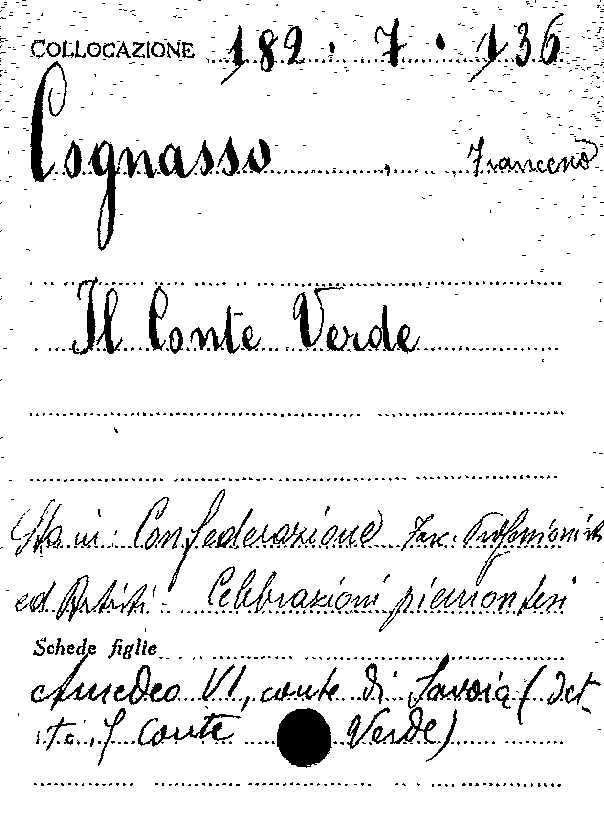 COLLOCAZIONE 182 . 7 . 136
Cognasso , Francesco
Il Conte Verde
Sta in: Confederazione Fasc. Professionisti
ed Artisti - Celebrazioni piemontesi
Schede figlie
Amedeo VI, conte di Savoia (det-
to il conte Verde)